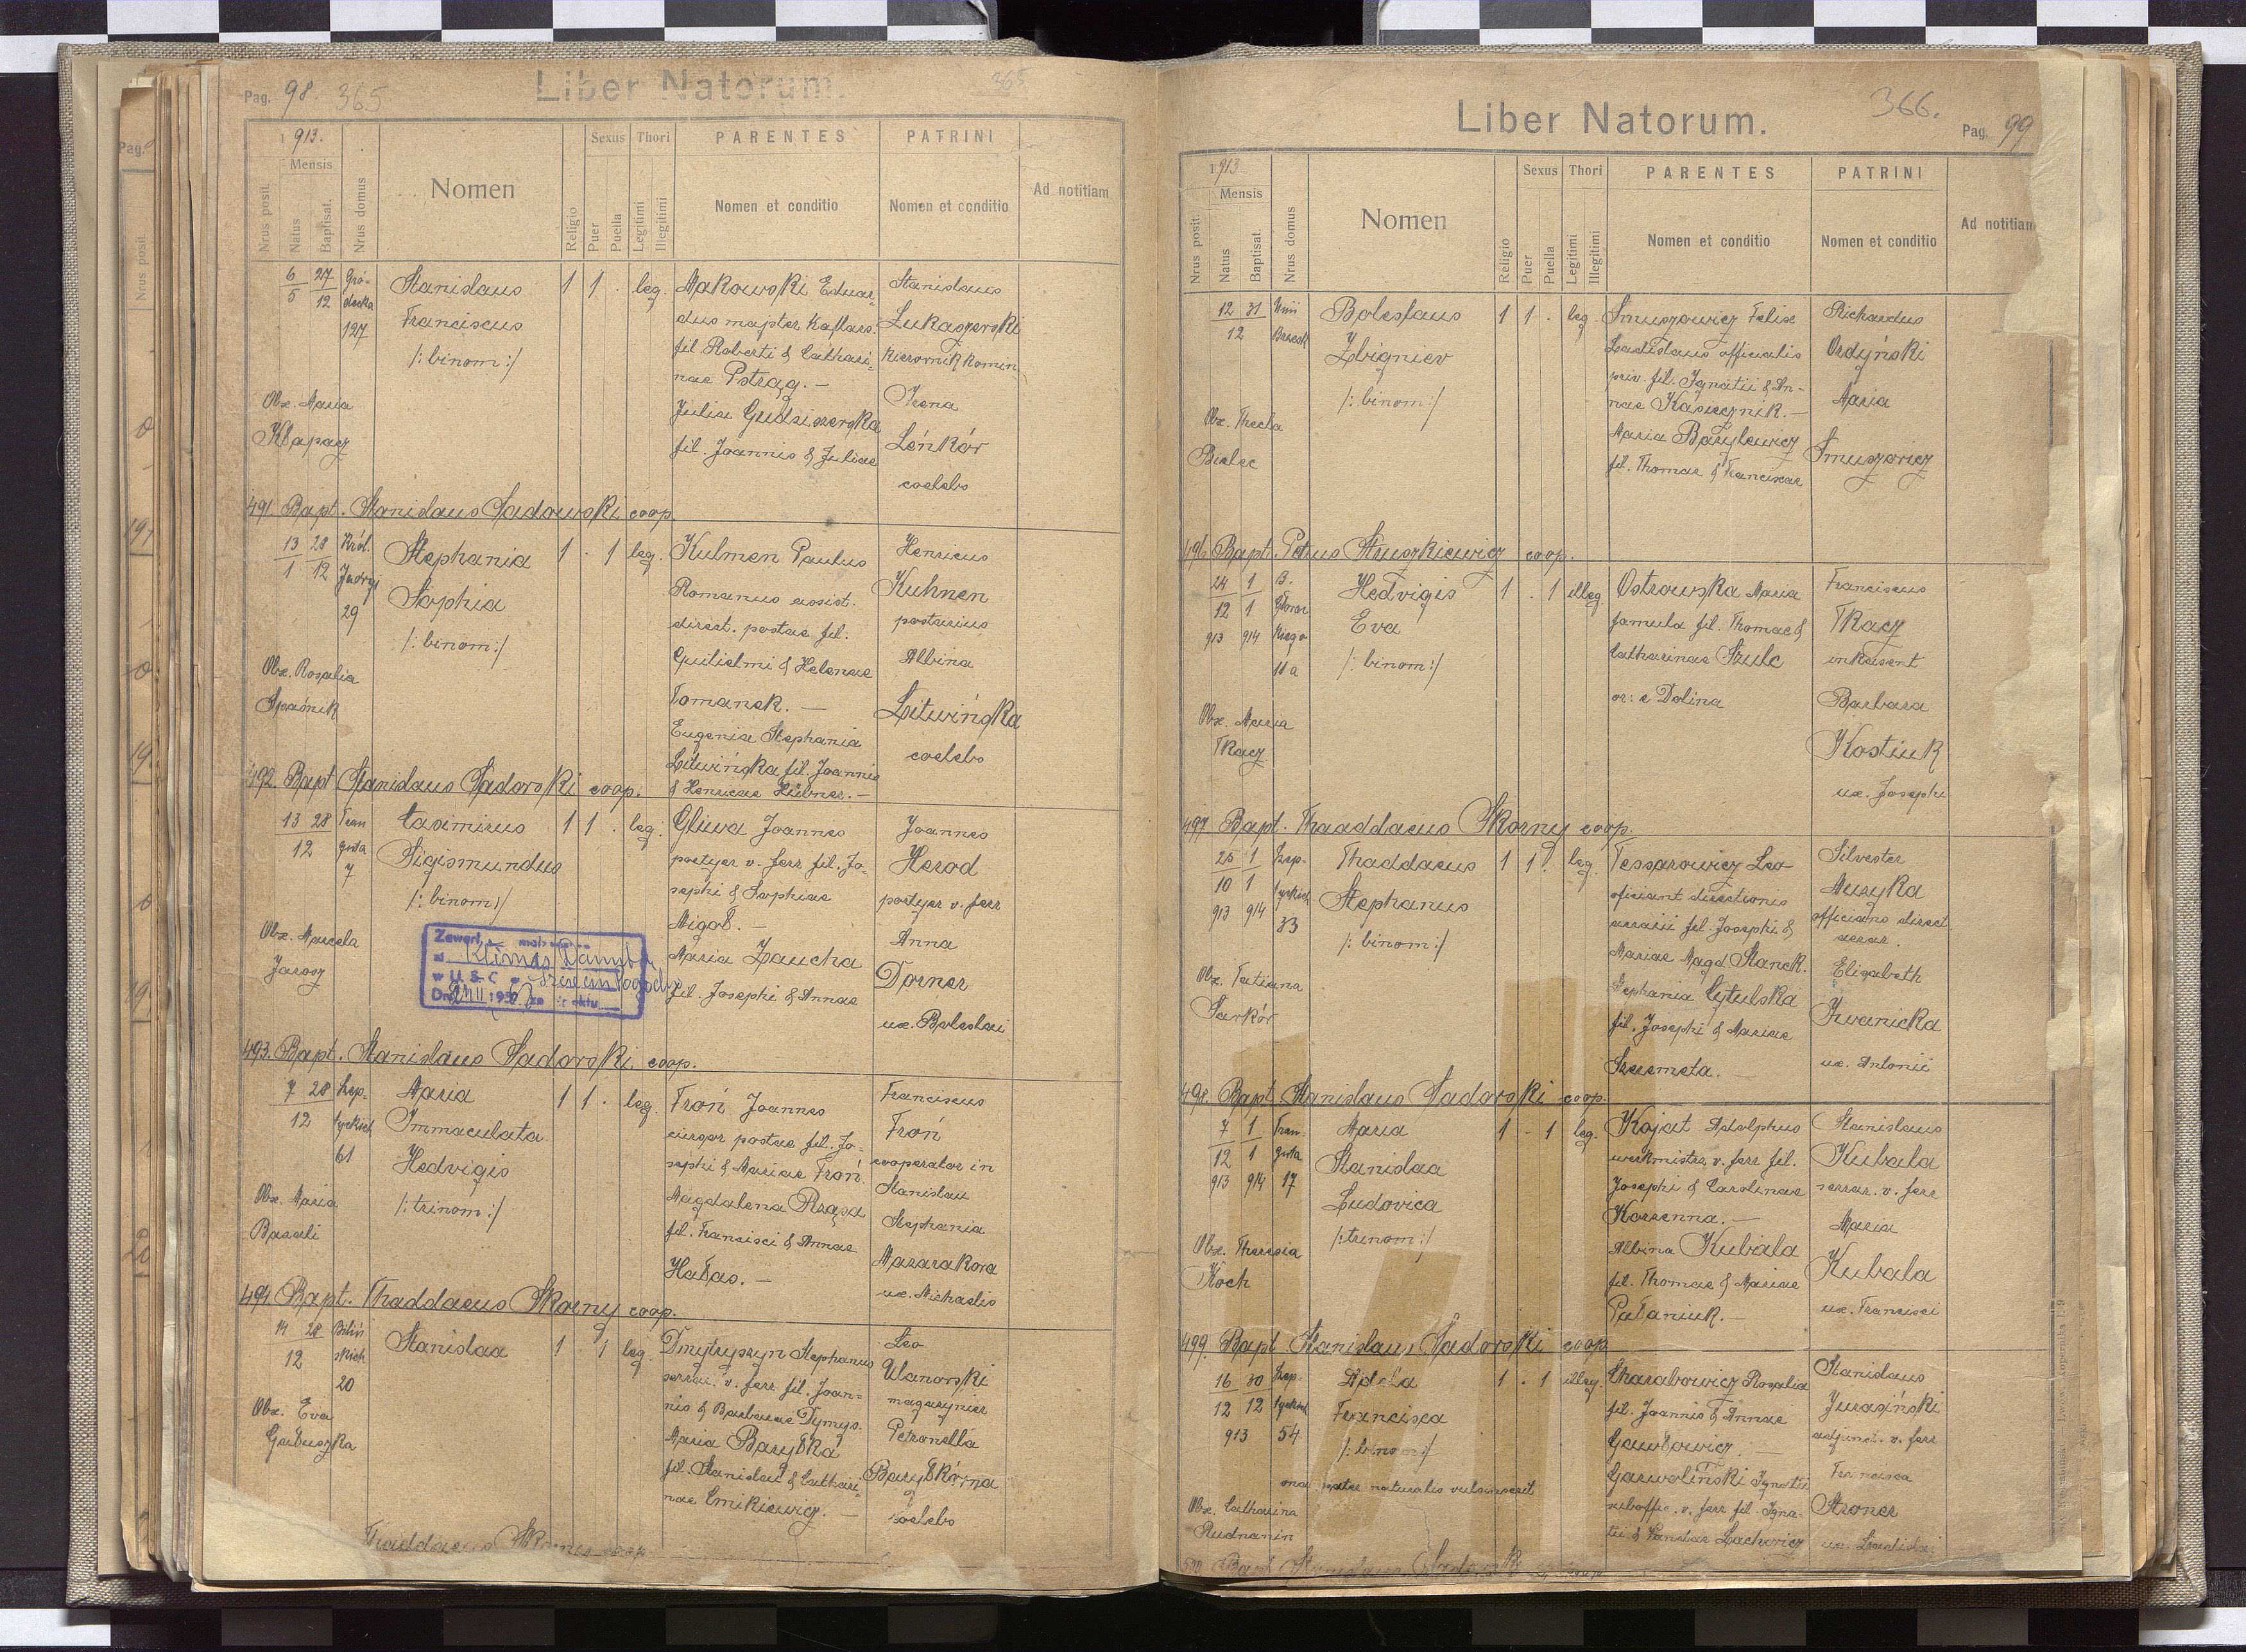 Pag. 98. 365
Liber Natorum.
365
1913.
Mensis
Nrus posit.
Natus
Baptisat.
Nrus domus
Nomen
Religio
Sexus
Puer
Puella
Thori
Legitimi
Illegitimi
PARENTES
Nomen et conditio
PATRINI
Nomen et conditio
Ad notitiam
6 27 Gró-
5 12 decka
127
Stanislaus
Franciscus
/: binom :/
1 1 . leg.
Makowski Eduar-
dus majster kaflars.
fil. Roberti & Cathari-
nae Pstrąg. –
Julia
fil. Joannis & Juliae
Stanislaus
Łukaszewski
kierownik komin.
Irena
Leńkór
coelebs
Obx. Maria
Kłapacz
491. Bapt. Stanislaus Sadowski coop.
13 28 Król.
1 12 Jadwgi
29
Stephania
Sophia
/: binom :/
1 . 1 leg.
Kulmen Paulus
Romanus assist.
direct. postae fil.
Guilielmi & Helenae
Tomanek. –
Eugenia Stephania
Litwińska fil. Joannis
& Henricae Hübner. –
Henricus
Kuhnen
postarius
Albina
Litwińska
coelebs
Obx. Rosalia
492. Bapt Stanislaus Sadowski coop.
13 28 Tran
12 guta
7
Casimirus
Sigismundus
/: binom :/
1 1 . leg.
Gliwa Joannes
portyer v. ferr fil. Jo-
sephi & Sophiae
Migoł. –
Maria Zaucha
fil. Josephi & Annae
Joannes
Herod
portyer v. ferr
Anna
Dorner
ux. Boleslai
Obx. Marcela
Jarosz
Zawarł
w U.S.C.
493. Bapt. Stanislaus Sadowski coop.
7 28 Łep-
12 tyckich
61
Maria
Immaculata
Hedvigis
/: trinom :/
1 1 . leg.
Froń Joannes
cursor postae fil. Jo-
sephi & Mariae Froń.
Magdalena Rząsa
fil. Francisci & Annae
Hałas. –
Franciscus
Froń
cooperator in
Stanislau
Stephania
Mazarakowa
ux. Michaelis
Obx. Maria
Basarli
494. Bapt. Thaddaeus Skorny coop.
14 28 Biliń
12 skich
20
Stanislaa
1 . 1 leg.
Dmytryszyn Stephanus
serrar. v. ferr fil. Joan-
nis & Barbarae Dymys.
Maria Baryłka
fil. Stanislai & Cathari-
nae Cmikiewicz. –
Leo
Ulanowski
magazynier
Petronella
Baryłkówna
coelebs
Obx. Eva
Gałuszka
Thaddaeus Skorny coop
Liber Natorum.
366.
Pag. 99
1913
Mensis
Nrus posit
Natus
Baptisat.
Nrus domus
Nomen
Religio
Sexus
Puer
Puella
Thori
Legitimi
Illegitimi
PARENTES
Nomen et conditio
PATRINI
Nomen et conditio
Ad notitiam
12 31 Unii
12 Brzesk
Boleslaus
Zbigniev
/: binom :/
1 1 . leg
Smuszowicz Felix
Ladislaus officialis
priv. fil. Ignatii & An-
nae Kasiecznik. –
Maria Baryłewicz
fil. Thomae & Franciscae
Richardus
Ordyński
Maria
Smuszowicz
Obx. Thecla
Bielec
496. Bapt. Petrus Struszkiewicz coop.
24 1 B.
12 1 Głowac
913 914 kiego
11 a
Hedvigis
Eva
/: binom :/
1 . 1 illeg.
Ostrowska Maria
famula fil. Thomae &
Catharinae Szulc
or: e Dolina
Franciscus
Tkacz
inkasent
Barbara
Kostiuk
ux. Josephi
Obx. Maria
Tkacz
497. Bapt. Thaddaeus Skorny coop.
25 1 Łep-
10 1 tyckich
913 914 33
Thaddaeus
Stephanus
/: binom :/
1 1 . leg.
Tessarowicz Leo
oficiant directionis
aerarii fil. Josephi &
Mariae Magd. Stanek.
Stephania Cytulska
fil. Josephi & Mariae
Szeremeta. –
Silvester
Muzyka
officians direct.
aerar.
Elizabeth
Iwanicka
ux. Antonii
Obx. Tatiana
498. Bapt Stanislaus Sadowski coop.
7 1 Tran-
12 1 guta
913 914 17
Maria
Stanislaa
Ludovica
/: trinom :/
1 - 1 leg.
Kojat Adolphus
werkmistrz v. ferr fil.
Josephi & Carolinae
Korzenna. –
Albina Kubala
fil. Thomae & Mariae
Pałaniuk. –
Stanislaus
Kubala
serrar. v. ferr
Maria
Kubala
ux. Francisci
Obx. Theresia
Koch
499. Bapt Stanislaus Sadowski coop
16 30 Łep-
12 12 tyckich
913 54
Adela
Francisca
/: binom :/
1 . 1 illeg.
Charabowicz Rosalia
fil. Joannis & Annae
Gawłowicz. –
Garwoliński Ignatii
suboffic. v. ferr fil. Igna-
tii & Lachowicz
Stanislaus
Jurasiński
adjunct. v. ferr
Francisca
Stroner
ux.
pater naturalis
Obx. Catharina
Rudnanin
500 Bapt Stanislaus Sadowski